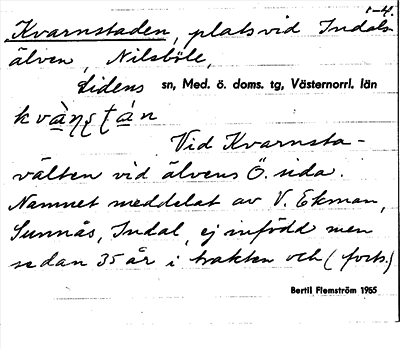 1-4.
Kvarnstaden, plats vid Indals
älven, Nilsböle,
Lidens sn, Med. ö. doms. tg, Västernorrl. län
Vid Kvarnsta-
välten vid älvens Ö. sida.
Namnet meddelat av V. Ekman,
Sunnås, Indal, ej infödd men
sedan 35 år i trakten och (forts.)
Bertil Flemström 1965